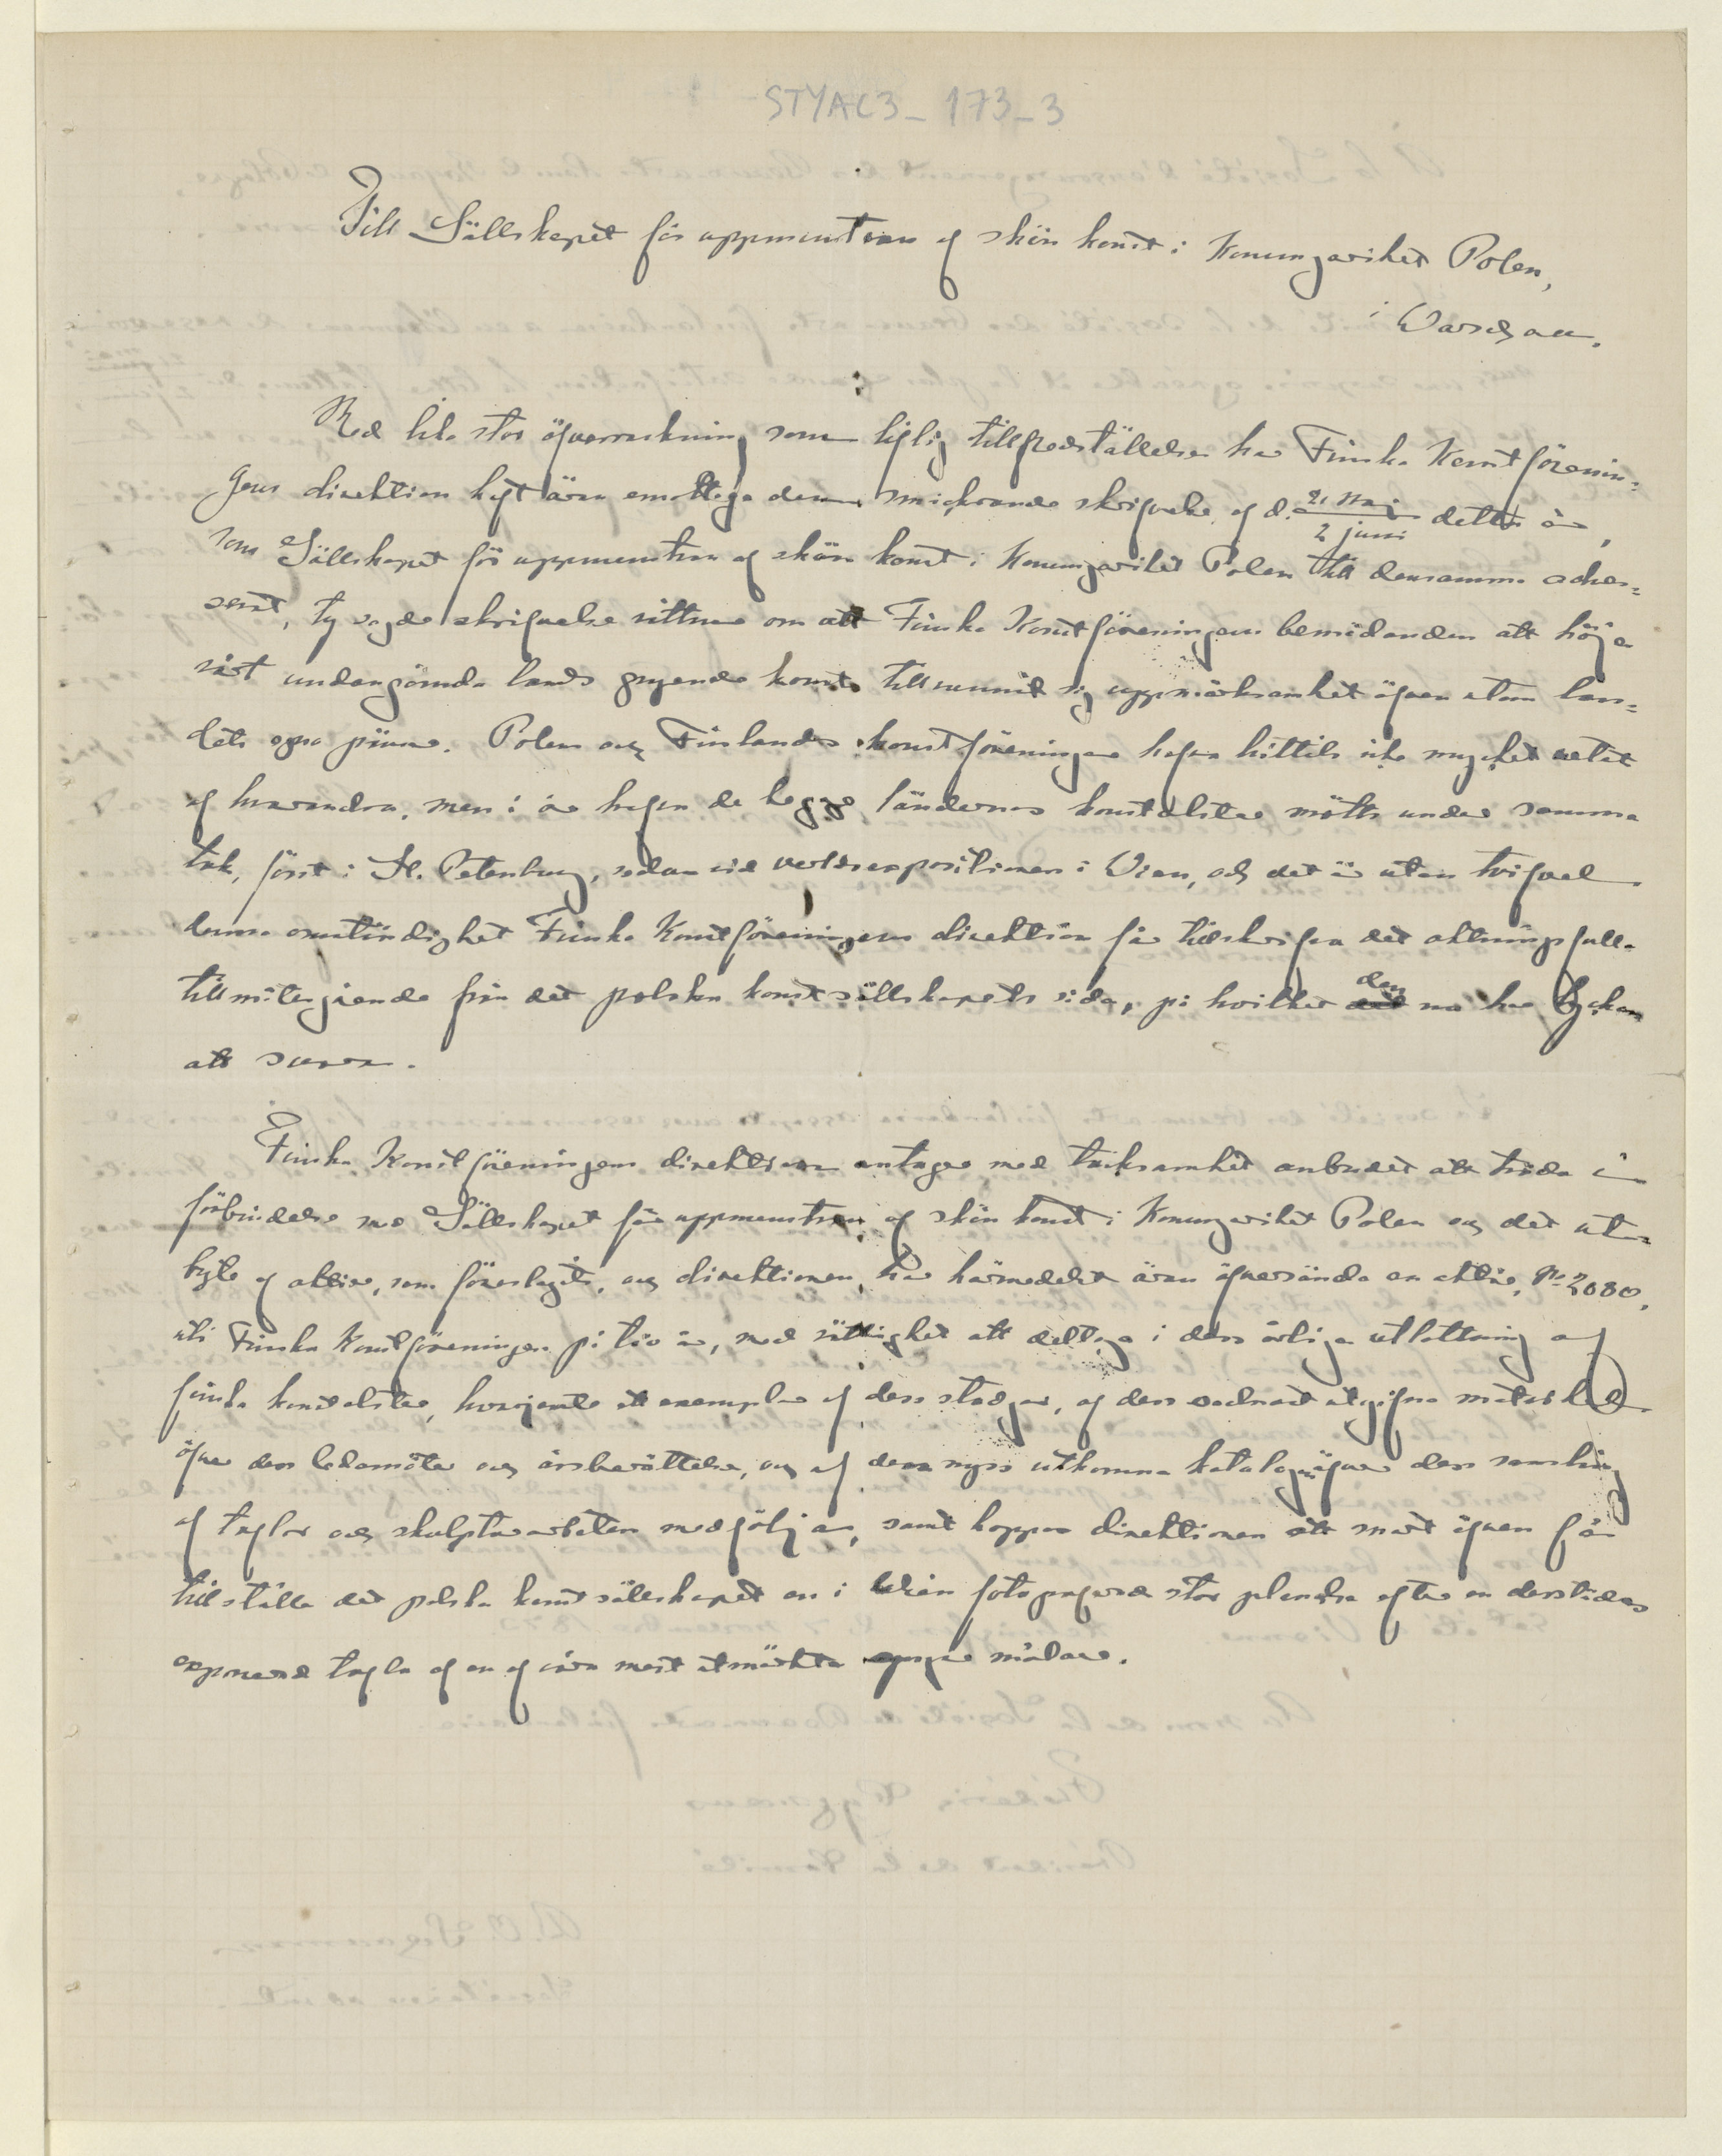 STYAC3_173_3
Till Sällskapet för uppmuntran af skön konst i Konungariket Polen,
i Warschau.
Med lika stor öfverraskning som liflig tillfredställelse har Finska Konstförenin=
gens direktion haft äran emottaga den smickrande skrifvelse af d. 21 Maj / 2 juni detta år,
som Sällskapet för uppmuntran af skön konst i Konungariket Polen till densamma adres=
serat, ty sagde skrifvelse vittnar om att Finska Konstföreningens bemödanden att höja
vårt undangömda lands gryende konst tillvunnit sig uppmärksamhet äfven utom lan=
dets egna gränser. Polens och Finlands konstföreningar hafva hittills icke mycket vetat
af hvarandra, men i år hafva de begge ländernas konstalster mötts under samma
tak, först i St. Petersburg, sedan vid verldsexpositionen i Wien, och det är utan tvifvel
denna omständighet Finska Konstföreningens direktion får tillskrifva det aktningsfulla
tillmötesgående från det polska konstsällskapets sida, på hvilket den nu har lyckan
att svara.
Finska Konstföreningens direktion antager med tacksamhet anbudet att träda i
förbindelse med Sällskapet för uppmuntran af skön konst i Konungariket Polen och det ut=
byte af aktier, som föreslagits, och direktionen har härmedelst äran öfversända en aktie, No 2080,
uti Finska Konstföreningen på tio år, med rättighet att deltaga i dess årliga utlottning af
finska konstalster, hvarjemte ett exemplar af dess stadgar, af dess senast utgifna matrikel
öfver dess ledamöter och årsberättelse, och af dess nyss utkomna katalog öfver dess samling
af taflor och skulpturarbeten medfölja, samt hoppas direktionen att snart äfven få
tillställa det polska konstsällskapet en i Wien fotograferad stor planche efter en derstädes
exponerad tafla af en af våra mest utmärkta målare.